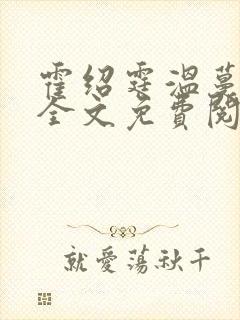 霍绍霆温蔓
全文免費閱
就愛蕩秋千